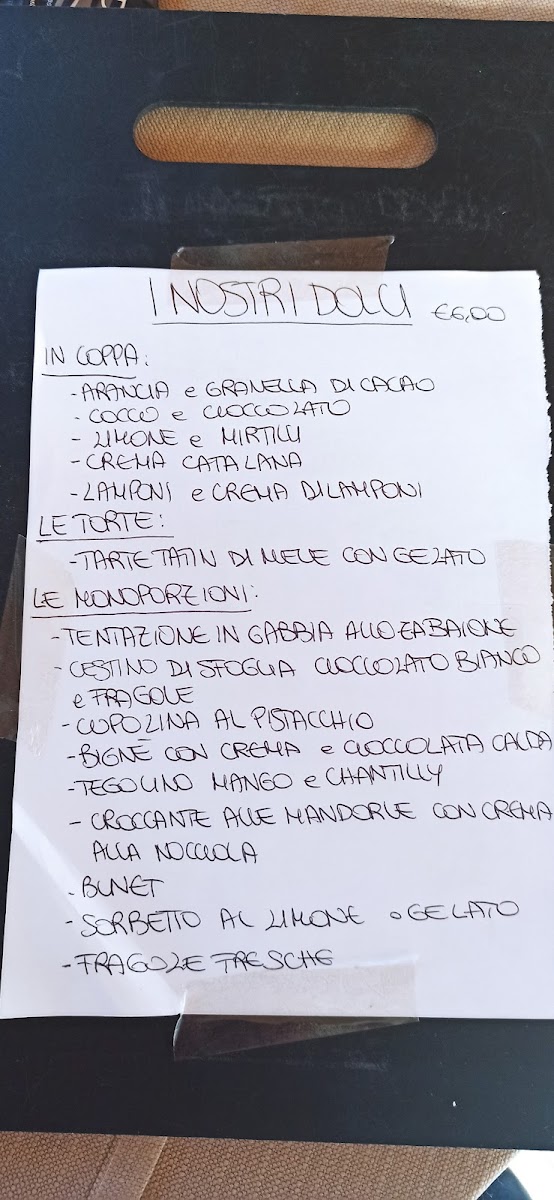 I NOSTRI DOLCI €6,00
IN COPPA:
- ARANCIA e GRANELLA DI CACAO
- COCCO e CIOCCOLATO
- LIMONE e MIRTILLI
- CREMA CATALANA
- LAMPONI e CREMA DI LAMPONI
LE TORTE:
- TARTE TATIN DI MELE CON GELATO
LE MONOPORZIONI:
- TENTAZIONE IN GABBIA ALLO ZABAIONE
- CESTINO DI SFOGLIA CIOCCOLATO BIANCO
e FRAGOLE
- CUPOLINA AL PISTACCHIO
- BIGNÈ CON CREMA e CIOCCOLATA CALDA
- TEGOLINO MANGO e CHANTILLY
- CROCCANTE ALLE MANDORLE CON CREMA
ALLA NOCCIOLA
- BUNET
- SORBETTO AL LIMONE o GELATO
- FRAGOLE FRESCHE